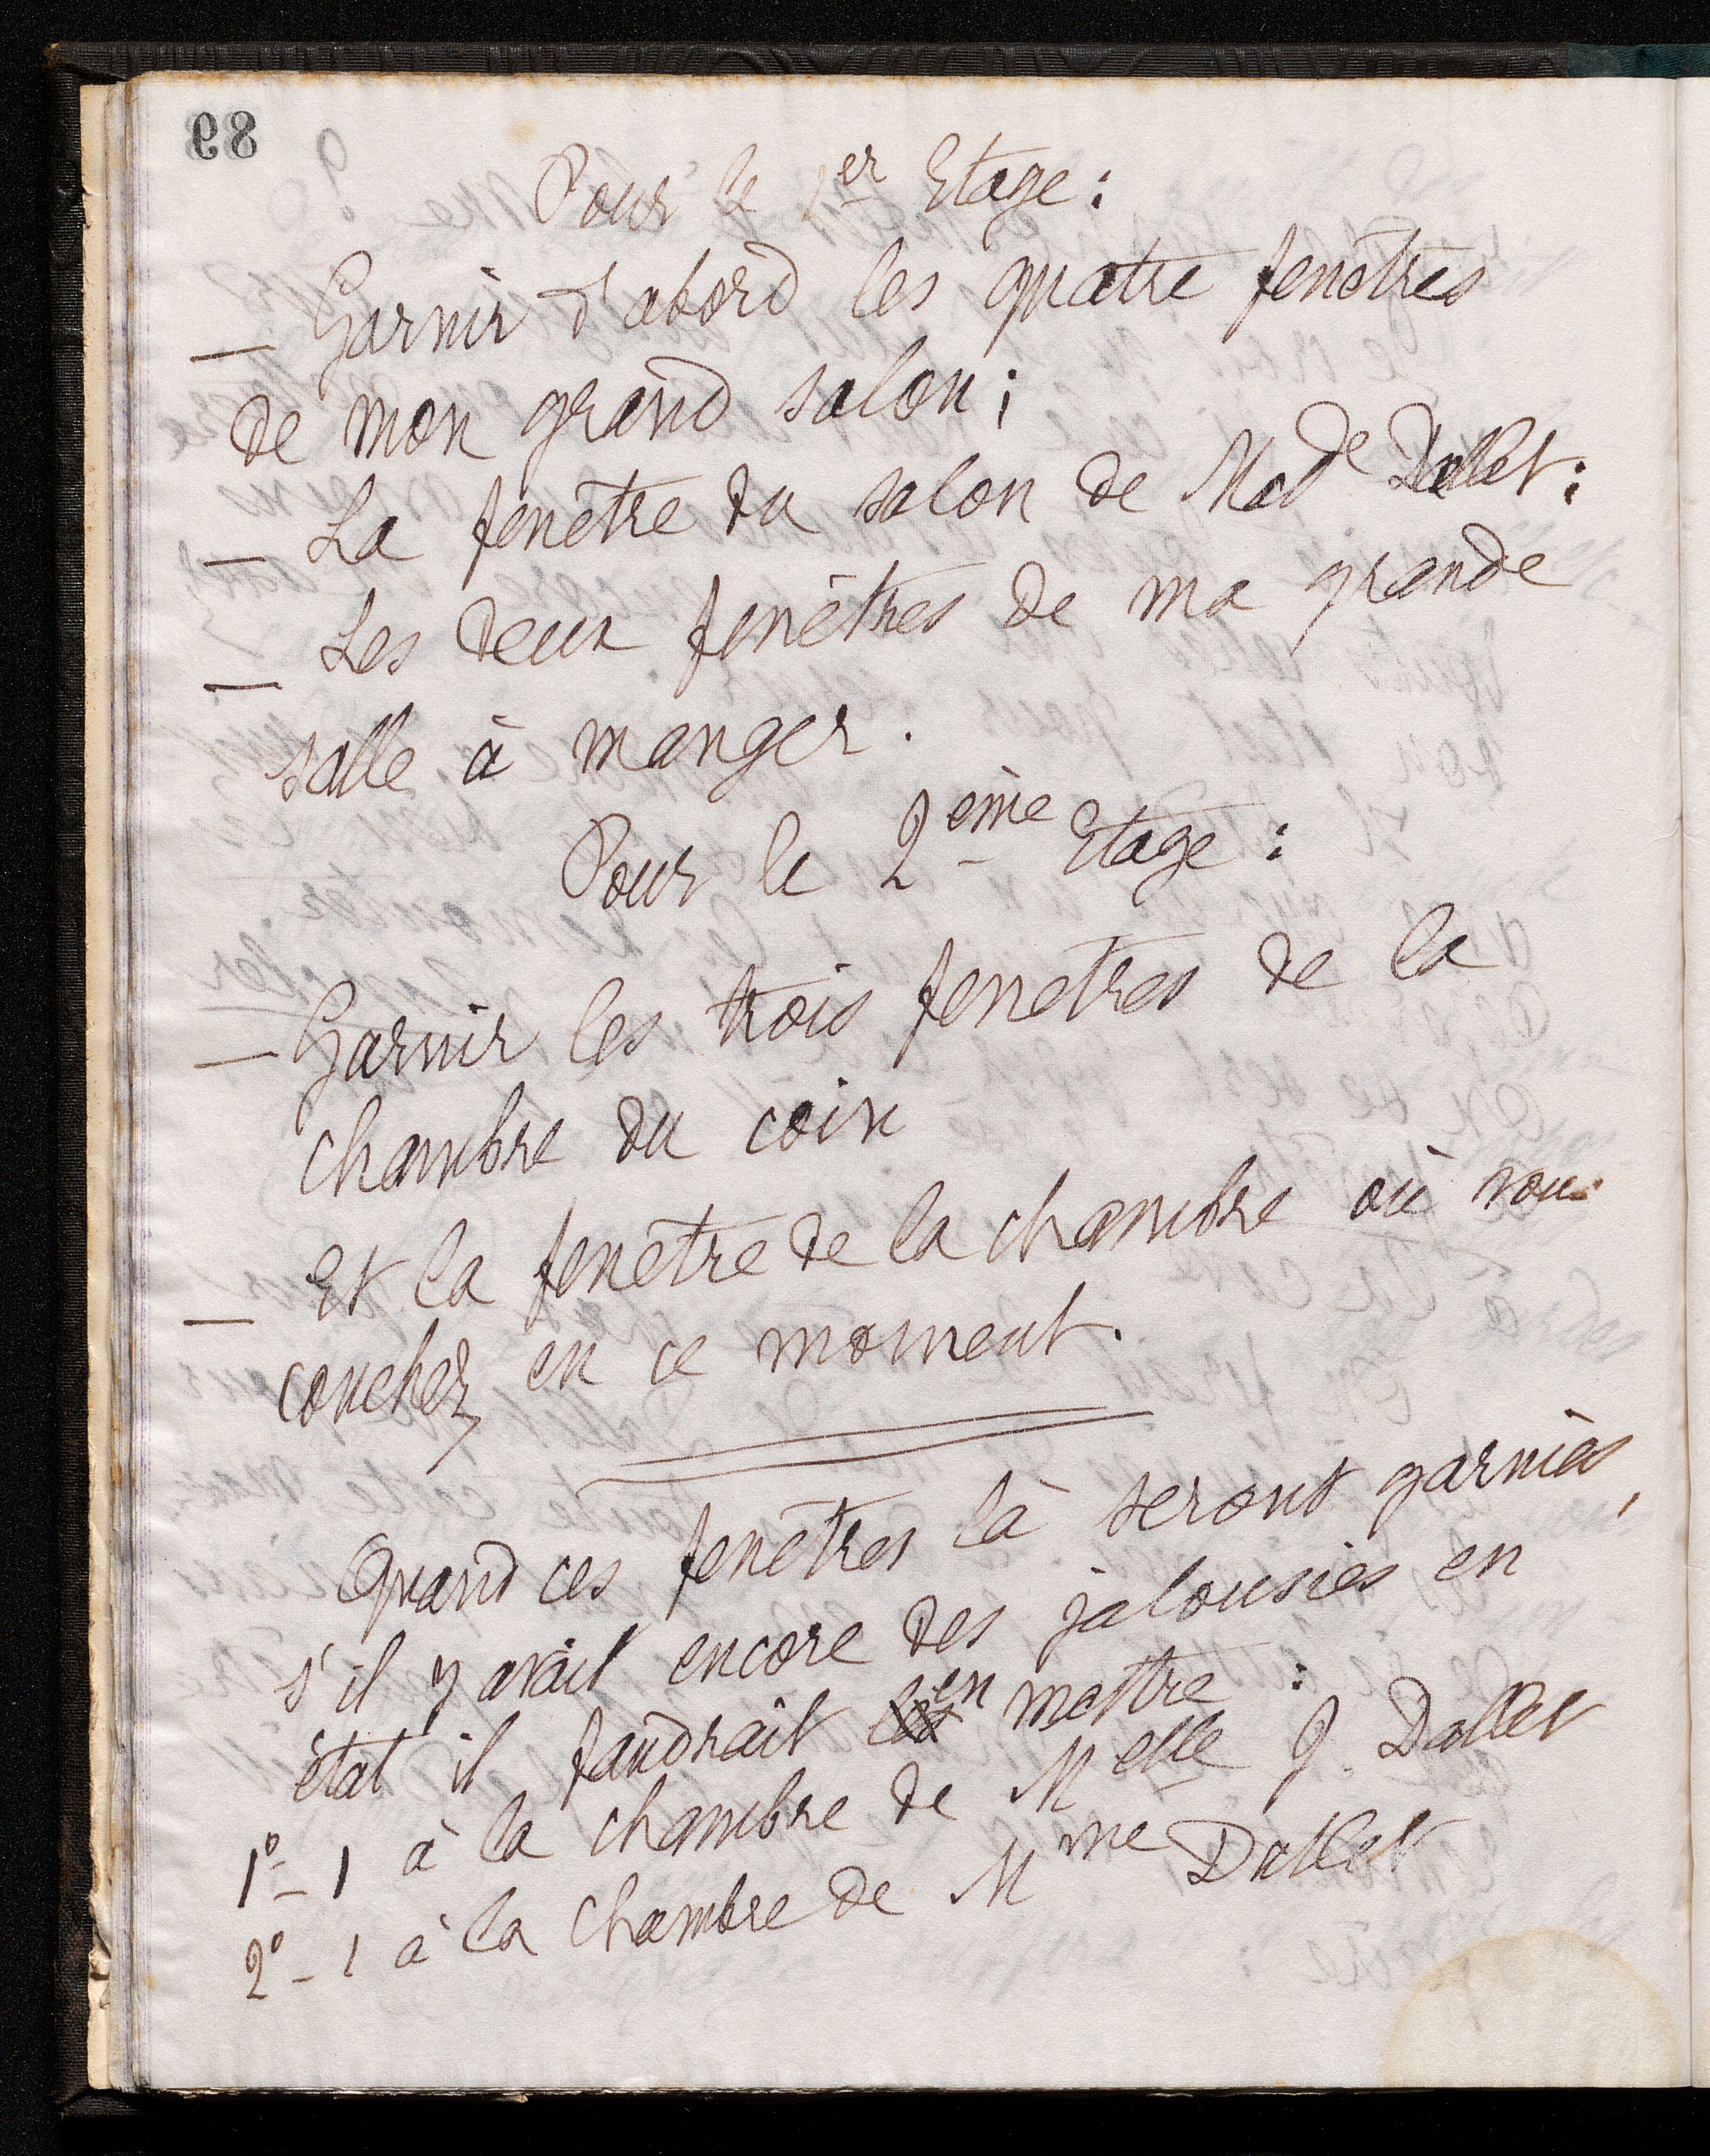 89
Pour le 1er Etage :
— Garnir d'abord les quatre fenêtres
de mon grand salon ;
— La fenêtre du salon de Made Dallet ;
— Les deux fenêtres de ma grande
salle à manger.
Pour le 2ème Etage :
— Garnir les trois fenetres de la
chambre du coin
— Et la fenêtre de la chambre où vous
couchez en ce moment.
Quand ces fenêtres là seront garnies,
s'il y avait encore des jalousies en
état il faudrait les en mettre :
1º - 1 à la chambre de Melle J. Dallet
2º - 1 à la chambre de Mme Dallet